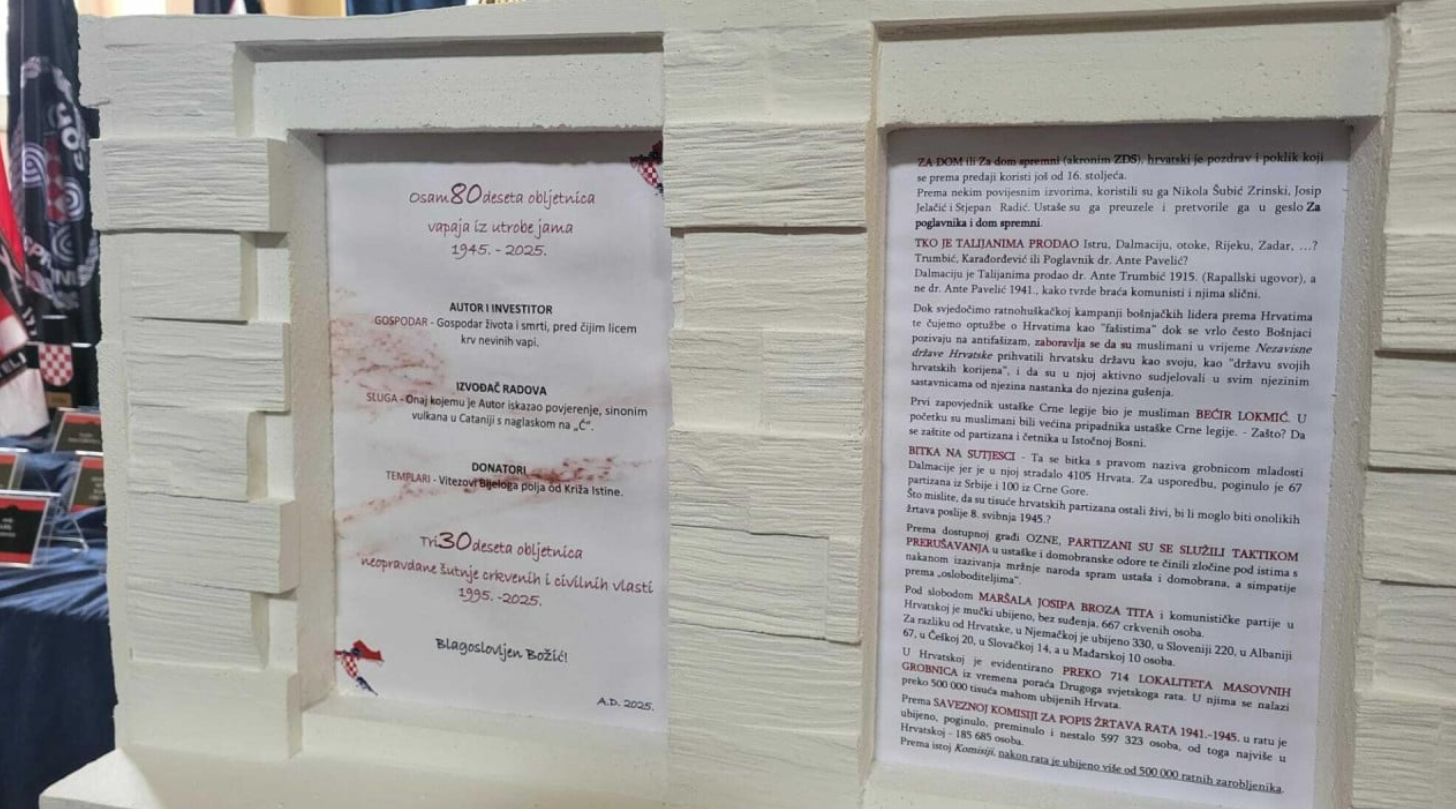 Osam80deseta obljetnica
vapaja iz utrobe jama
1945. - 2025.
AUTOR I INVESTITOR
GOSPODAR - Gospodar života i smrti, pred čijim licem
krv nevinih vapi.
IZVOĐAČ RADOVA
SLUGA - Onaj kojemu je Autor iskazao povjerenje, sinonim
vulkana u Cataniji s naglaskom na „Ć“.
DONATORI
TEMPLARI - Vitezovi Bijeloga polja od Križa Istine.
Tri30deseta obljetnica
neopravdane šutnje crkvenih i civilnih vlasti
1995. -2025.
Blagoslovljen Božić!
A.D. 2025.
ZA DOM ili Za dom spremni (akronim ZDS), hrvatski je pozdrav i poklik koji
se prema predaji koristi još od 16. stoljeća.
Prema nekim povijesnim izvorima, koristili su ga Nikola Šubić Zrinski, Josip
Jelačić i Stjepan Radić. Ustaše su ga preuzele i pretvorile ga u geslo Za
poglavnika i dom spremni.
TKO JE TALIJANIMA PRODAO Istru, Dalmaciju, otoke, Rijeku, Zadar, ...?
Trumbić, Karađorđević ili Poglavnik dr. Ante Pavelić?
Dalmaciju je Talijanima prodao dr. Ante Trumbić 1915. (Rapallski ugovor), a
ne dr. Ante Pavelić 1941., kako tvrde braća komunisti i njima slični.
Dok svjedočimo ratnohuškačkoj kampanji bošnjačkih lidera prema Hrvatima
te čujemo optužbe o Hrvatima kao "fašistima" dok se vrlo često Bošnjaci
pozivaju na antifašizam, zaboravlja se da su muslimani u vrijeme Nezavisne
države Hrvatske prihvatili hrvatsku državu kao svoju, kao "državu svojih
hrvatskih korijena", i da su u njoj aktivno sudjelovali u svim njezinim
sastavnicama od njezina nastanka do njezina gušenja.
Prvi zapovjednik ustaške Crne legije bio je musliman BEĆIR LOKMIĆ. U
početku su muslimani bili većina pripadnika ustaške Crne legije. - Zašto? Da
se zaštite od partizana i četnika u Istočnoj Bosni.
BITKA NA SUTJESCI - Ta se bitka s pravom naziva grobnicom mladosti
Dalmacije jer je u njoj stradalo 4105 Hrvata. Za usporedbu, poginulo je 67
partizana iz Srbije i 100 iz Crne Gore.
Što mislite, da su tisuće hrvatskih partizana ostali živi, bi li moglo biti onolikih
žrtava poslije 8. svibnja 1945.?
Prema dostupnoj građi OZNE, PARTIZANI SU SE SLUŽILI TAKTIKOM
PRERUŠAVANJA u ustaške i domobranske odore te činili zločine pod istima s
nakanom izazivanja mržnje naroda spram ustaša i domobrana, a simpatije
prema „osloboditeljima“.
Pod slobodom MARŠALA JOSIPA BROZA TITA i komunističke partije u
Hrvatskoj je mučki ubijeno, bez suđenja, 667 crkvenih osoba.
Za razliku od Hrvatske, u Njemačkoj je ubijeno 330, u Sloveniji 220, u Albaniji
67, u Češkoj 20, u Slovačkoj 14, a u Mađarskoj 10 osoba.
U Hrvatskoj je evidentirano PREKO 714 LOKALITETA MASOVNIH
GROBNICA iz vremena poraća Drugoga svjetskoga rata. U njima se nalazi
preko 500 000 tisuća mahom ubijenih Hrvata.
Prema SAVEZNOJ KOMISIJI ZA POPIS ŽRTAVA RATA 1941.-1945. u ratu je
ubijeno, poginulo, preminulo i nestalo 597 323 osoba, od toga najviše u
Hrvatskoj - 185 685 osoba.
Prema istoj Komisiji, nakon rata je ubijeno više od 500 000 ratnih zarobljenika.